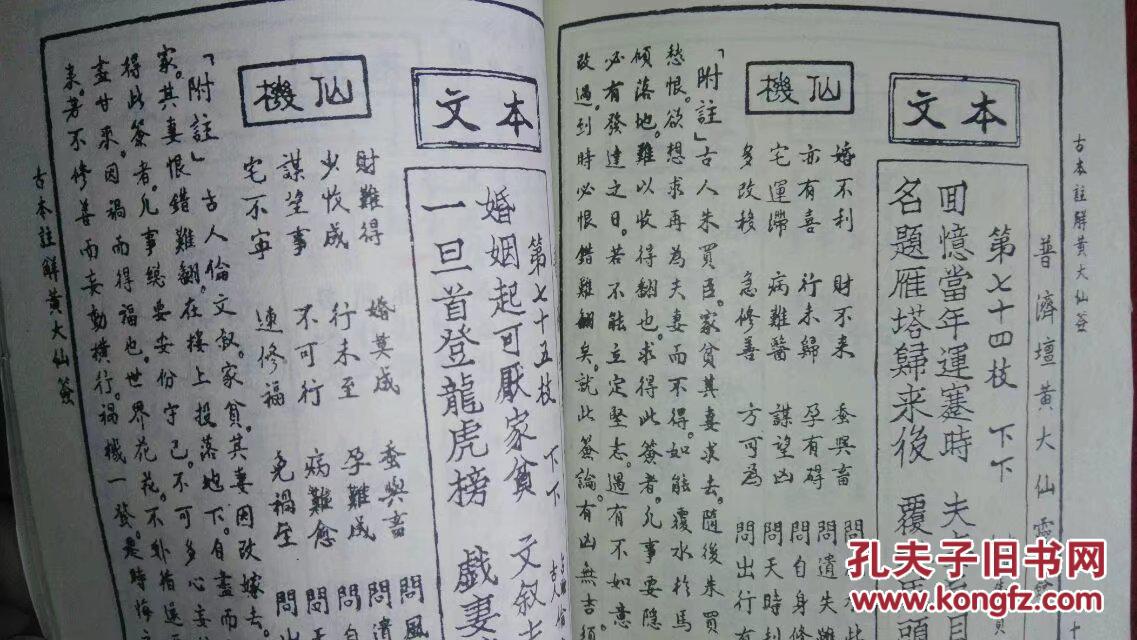 古本註解黃大仙簽
普濟壇黃大仙靈
本文
第七十四枝 下下
回憶當年運蹇時 夫
名題雁塔歸來後 覆
仙機
婚不利 財不來 蚕與畜
亦有喜 行未歸 孕有碍 問遺失
宅運滯 病難醫 謀望凶 問自身
多改移 急修善 方可為 問天時
問出行
「附註」古人朱買臣。家貧其妻求去。隨後朱買
愁恨。欲想求再為夫妻而不得。如能覆水於馬
傾落地。難以收得翻也。求得此簽者。凡事要隱
必有發達之日。若不能立定堅志。遇有不如意
改過。到時必恨錯難翻矣。就此簽論。有凶無吉須
本文
第七十五枝 下下 古人
婚姻起可厭家貧 文叙
一旦首登龍虎榜 戲妻
仙機
財難得 婚莫成 蚕與畜 問風
少收成 行未至 孕難成
謀望事 不可行 病難愈 問
宅不寧 速修福 免禍生 問
「附註」古人倫文叙。家貧。其妻因改嫁去。
家。其妻恨錯難翻。在樓上投落地下。自盡而
得此簽者。凡事總要安份守己。不可多心妄
盡甘來。因禍而得福也。世界花花。不
表。若不修善而妄動橫行。禍機一發。是時悔
古本註解黃大仙簽
孔夫子旧书网
www.kongfz.com